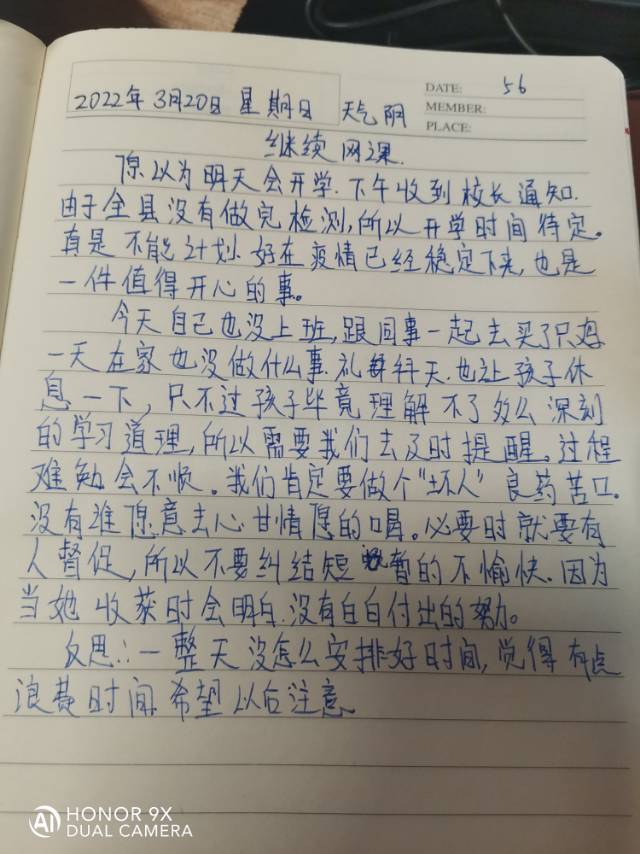 DATE: 56
MEMBER:
PLACE:
2022年3月20日 星期日 天气阴
继续网课.
原以为明天会开学.下午收到校长通知.
由于全县没有做完检测,所以开学时间待定。
真是不能计划.好在疫情已经稳定下来,也是
一件值得开心的事。
今天自己也没上班,跟同事一起去买了只鸡
一天在家也没做什么事.礼拜天.也让孩子休
息一下,只不过孩子毕竟理解不了多么深刻
的学习道理,所以需要我们去及时提醒。过程
难免会不顺。我们肯定要做个“坏人”良药苦口。
没有谁愿意去心甘情愿的喝。必要时就要有
人督促,所以不要纠结短暂的不愉快.因为
当她收获时会明白.没有白白付出的努力。
反思:一整天没怎么安排好时间,觉得有点
浪费时间.希望以后注意
HONOR 9X
DUAL CAMERA